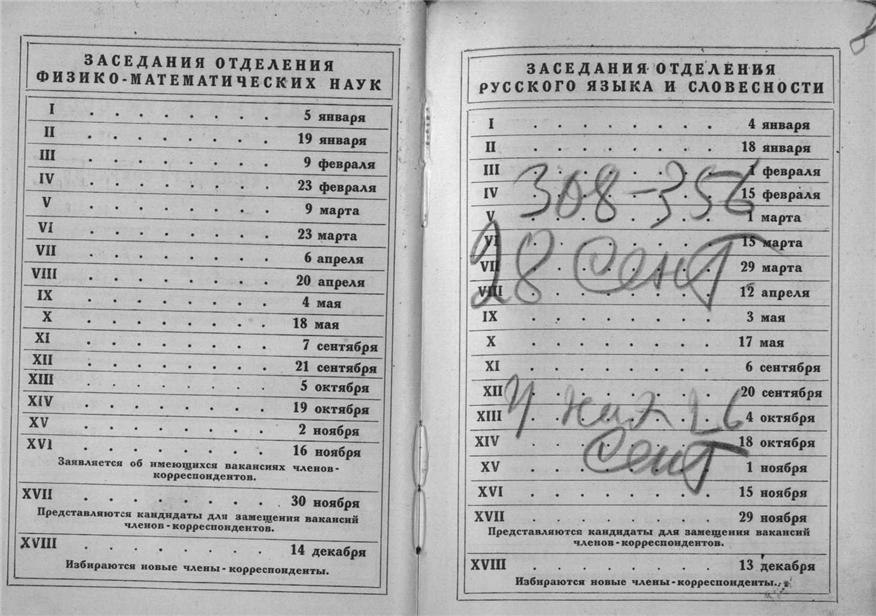 ЗАСЕДАНИЯ ОТДЕЛЕНИЯ
ФИЗИКО-МАТЕМАТИЧЕСКИХ НАУК
I . . . . . . . . 5 января
II . . . . . . . . 19 января
III . . . . . . . . 9 февраля
IV . . . . . . . . 23 февраля
V . . . . . . . . 9 марта
VI . . . . . . . . 23 марта
VII . . . . . . . . 6 апреля
VIII . . . . . . . . 20 апреля
IX . . . . . . . . 4 мая
X . . . . . . . . 18 мая
XI . . . . . . . . 7 сентября
XII . . . . . . . . 21 сентября
XIII . . . . . . . . 5 октября
XIV . . . . . . . . 19 октября
XV . . . . . . . . 2 ноября
XVI . . . . . . . . 16 ноября
Заявляется об имеющихся вакансиях членов-
корреспондентов.
XVII . . . . . . . . 30 ноября
Представляются кандидаты для замещения вакансий
членов-корреспондентов.
XVIII . . . . . . . . 14 декабря
Избираются новые члены-корреспонденты.
ЗАСЕДАНИЯ ОТДЕЛЕНИЯ
РУССКОГО ЯЗЫКА И СЛОВЕСНОСТИ
I . . . . . . . . 4 января
II . . . . . . . . 18 января
III . . . . . . . . 1 февраля
IV . . . . . . . . 15 февраля
308-356
V . . . . . . . . 1 марта
VI . . . . . . . . 15 марта
VII . . . . . . . . 29 марта
28 Сент
VIII . . . . . . . . 12 апреля
IX . . . . . . . . 3 мая
X . . . . . . . . 17 мая
XI . . . . . . . . 6 сентября
XII . . . . . . . . 20 сентября
XIII . . . . . . . . 4 октября
26
XIV . . . . . . . . 18 октября
Сент
XV . . . . . . . . 1 ноября
XVI . . . . . . . . 15 ноября
XVII . . . . . . . . 29 ноября
Представляются кандидаты для замещения вакансий
членов-корреспондентов.
XVIII . . . . . . . . 13 декабря
Избираются новые члены-корреспонденты.